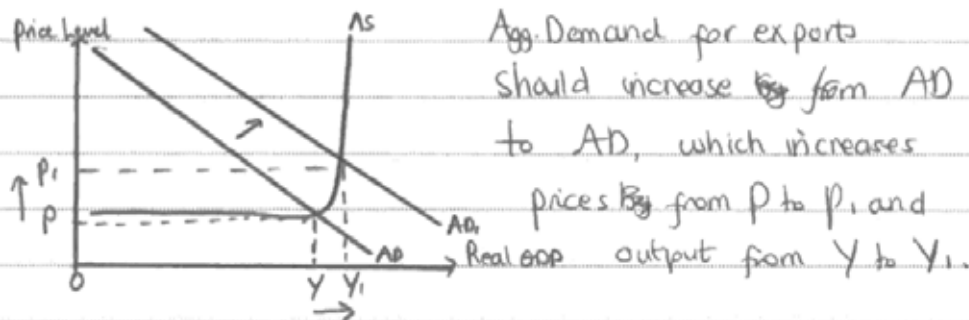 Price Level
AS
P₁
P
AD₁
AD
Real GDP
0
Y
Y₁
Agg. Demand for exports
should increase from AD
to AD₁ which increases
prices from P to P₁ and
output from Y to Y₁.